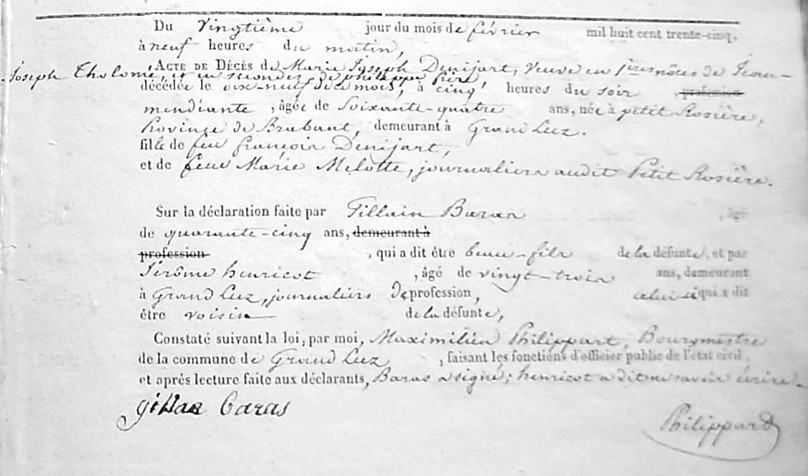 Du Vingtième jour du mois de février mil huit cent trente-cinq,
à neuf heures du matin,
ACTE DE DÉCÈS de Marie Joseph Denijart, veuve en premières noces de Jean-
Joseph Tholomé, et en secondes de philippe
décédée le dix-neuf de ce mois, à cinq heures du soir, profession
mendiante, âgée de Soixante-quatre ans, née à petit Rosière,
Province de Brabant, demeurant à Grand Leez.
fille de feu françois Denijart,
et de feue Marie Melotte, journaliers audit Petit Rosière.
Sur la déclaration faite par Gillain Baras, âgé
de quarante-cinq ans, demeurant à
profession, qui a dit être beau-fils de la défunte, et par
Jérôme henricot, âgé de vingt-trois ans, demeurant
à Grand Leez, journaliers De profession, celui ci qui a dit
être voisin de la défunte,
Constaté suivant la loi, par moi, Maximilien Philippart, Bourgmestre
de la commune de Grand Leez, faisant les fonctions d'officier public de l'état civil,
et après lecture faite aux déclarants, Baras a signé; henricot a dit ne savoir écrire.
gillae baras
Philippart